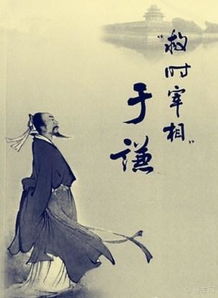 “救时宰相”
于谦